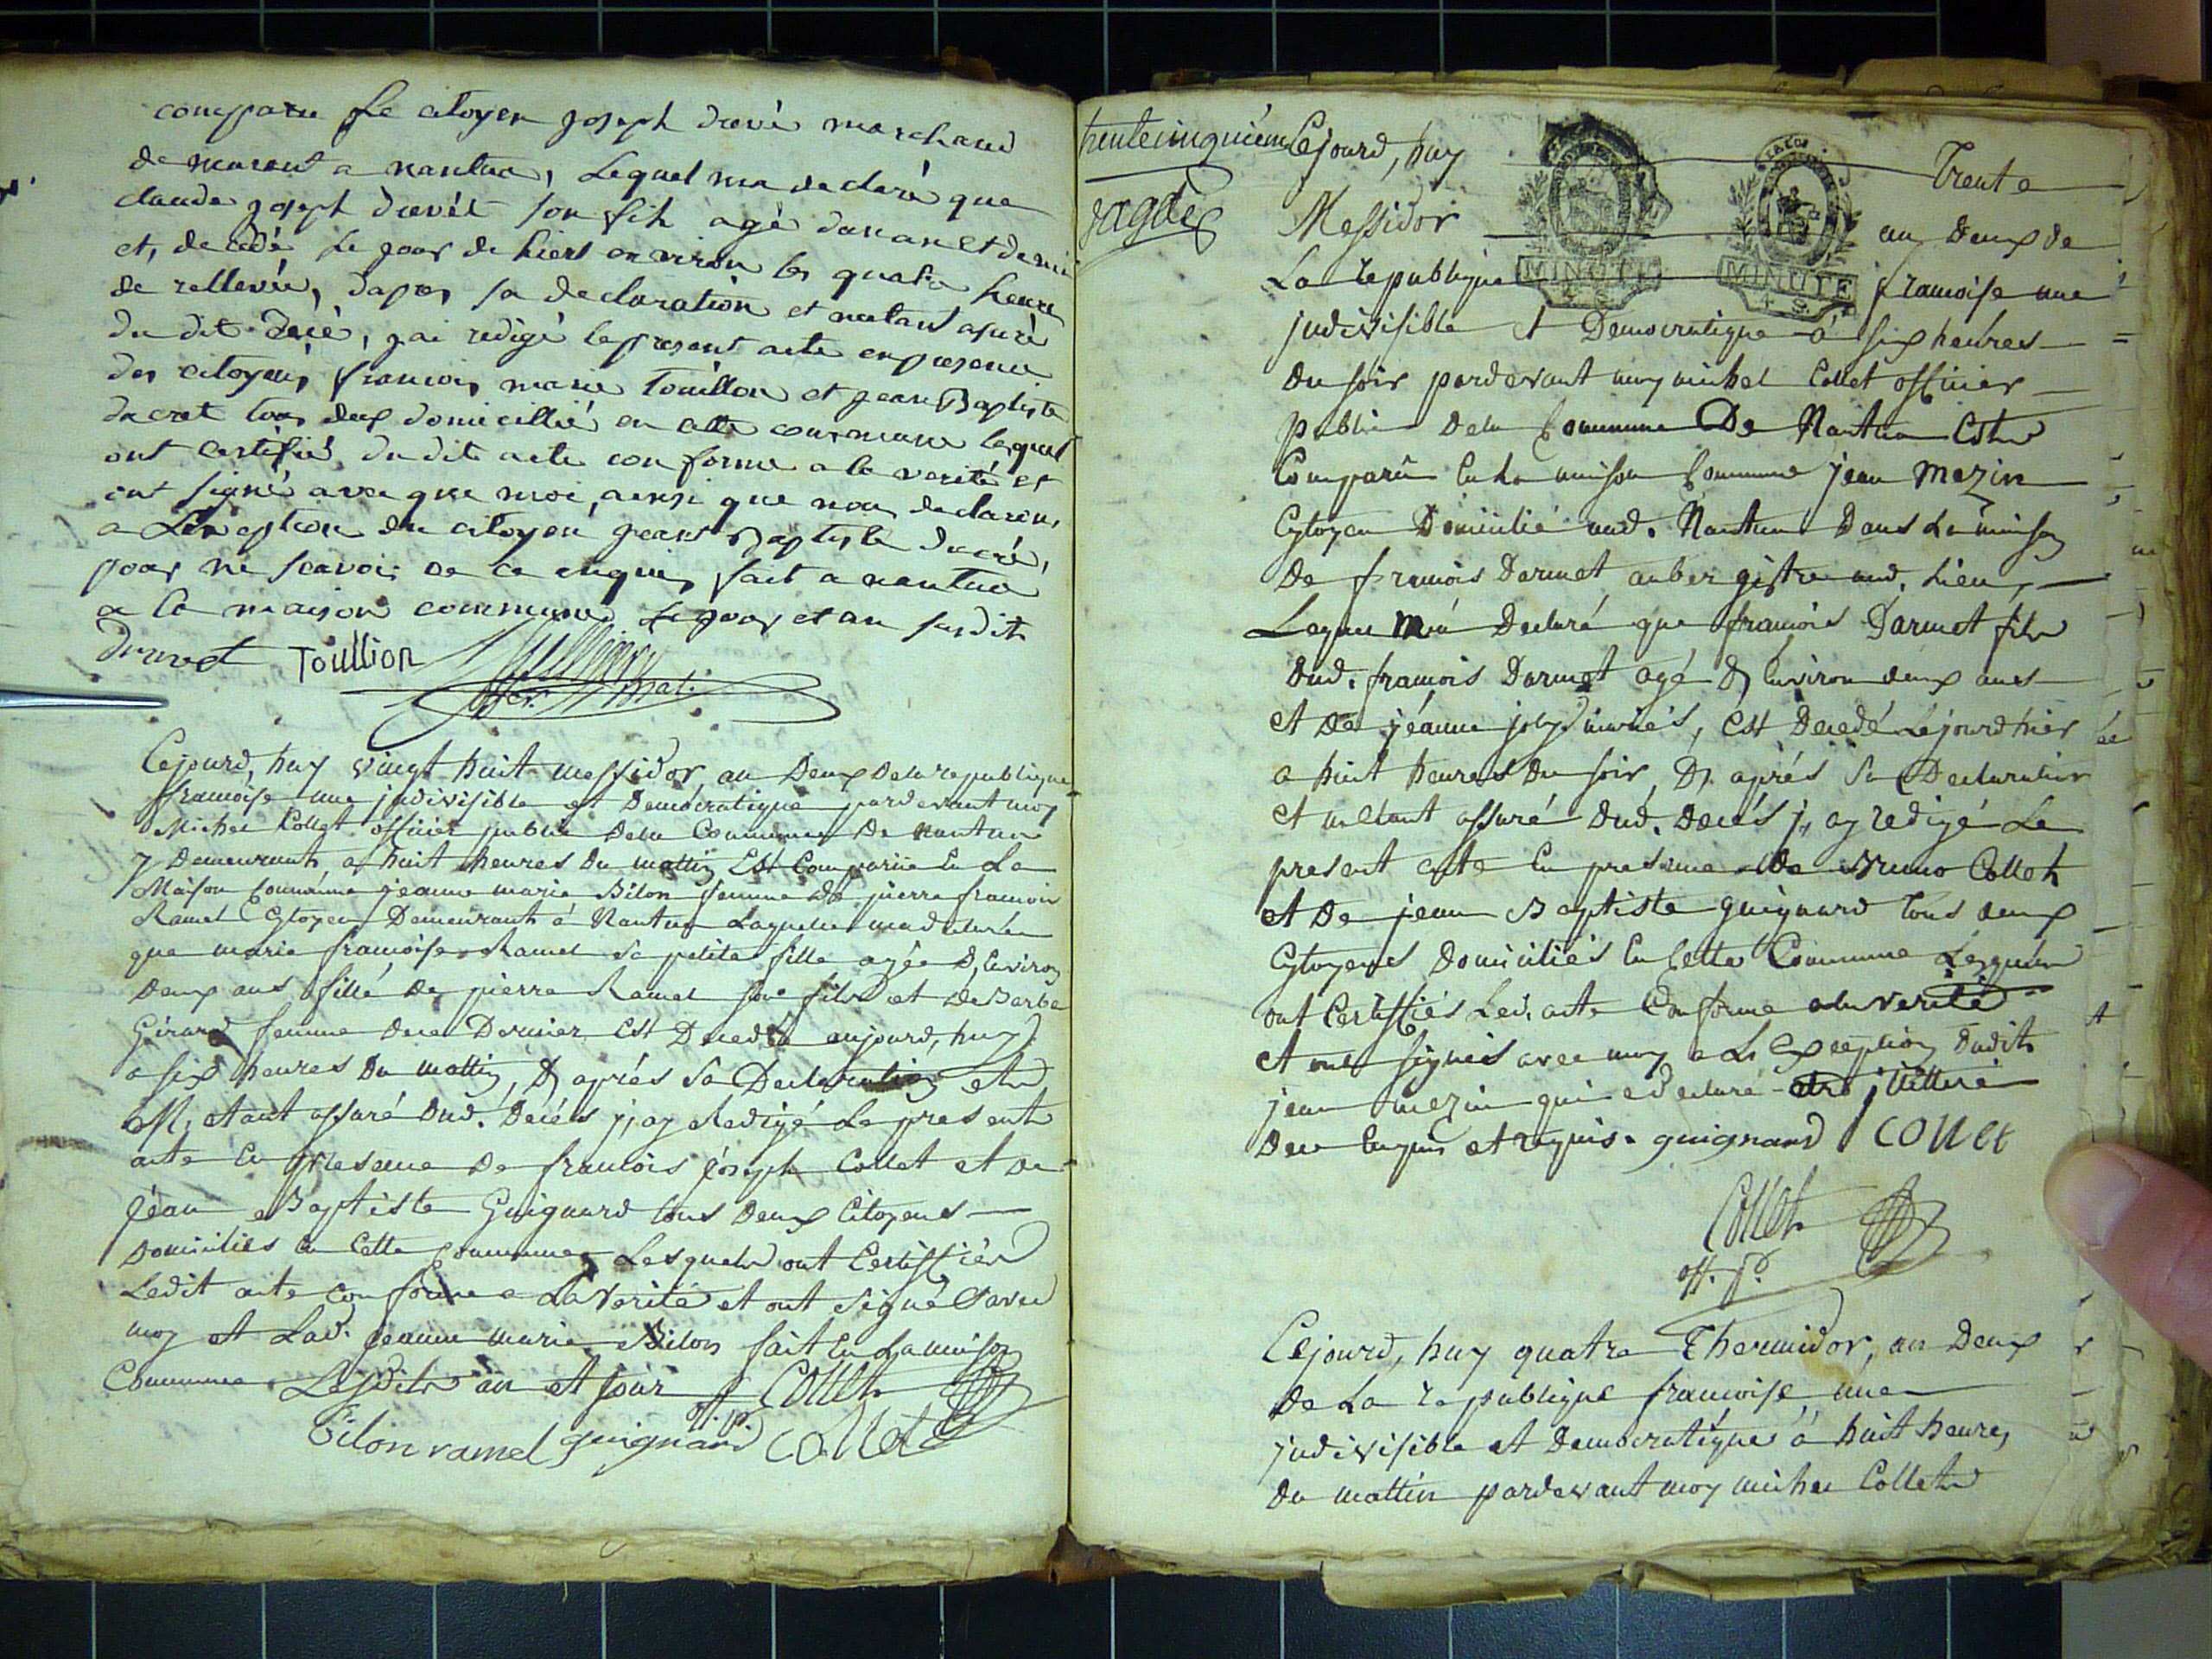 comparu Le citoyen joseph druvé marchand
demeurant a nantua, Lequel ma declaré que
claude joseph druvét son fils agé dun an et demi
et, decedé, le jour de hiert environ les quatre heure
de rellevée, dapres sa declaration et metant asuré
du dit décé, jai redigé le present acte en presence
des citoyens francois marie Touillon et jean Baptiste
ducret tous deux domicillié en cette commune lesquel
ont certifié du dit acte conforme a la verité et
ont signé avec que moi, ainsi que nous declarons,
a Lexception du citoyen jeant Baptiste ducré,
pour ne scavoir de ce enquis, fait a nantua
a la maison commune Le jour et an susdit
druvet Toullion
Cejourd,huy vingt huit messidor an Deux dela republique
francoise une jndivisible et Democratique pardevant moy
Michel Collet officier public dela Commune De nantua
y Demeurant, a huit heures du mattin Est Comparüe En La
Maison Commune jeanne marie Bilon femme de pierre francois
Ramel Cytoyen Demeurant á Nantua Laquelle ma declarée
que marie francoise Ramel sa petite fille agée D,Environ
Deux ans fille De pierre Ramel son fils et De Barbe
Girard femme de ce Dernier Est Decedée aujourd,huy
a six heures Du mattin, D,aprés Sa Declaration et
M,etant assuré Dud. Decés j,ay Redigé Le present
acte En presence De francois joseph Collet et De
jéan Baptiste Guignard tous Deux Citoyens
Domiciliés En Cette Commune, Lesquels ont Certiffiés
Ledit acte Conforme a La verité et ont signé avec
moy et Lad. jeanne marie Bilon fait En La maison
Commune Lesdits an et jour Collet
off. p.
Bilon ramel guignard Collet
trente cinquiem
Cejourd,huy Trente
Messidor an Deux de
La republique francoise une
jndivisible et Democratique á six heures
du soir pardevant moy michel Collet officier
public dela Commune De Nantua Est
Comparu En La maison Commune jean Mezin
Cytoyen Domicilié aud. Nantua Dans La maison
De francois Darmet aubergiste aud. Lieu,
Lequel M'a Declaré que francois Darmet fils
Dud. francois Darmet agé D,Environ deux ans
et De jéanne joly mariés, est Decedé Lejourd hier
a huit heures Du soir, D,aprés Sa Declaration
et m'etant assuré Dud. Decés j,ay redigé Le
present acte En presence De Bruno Collet
et De jean Baptiste guignard tous deux
Cytoyens Domiciliés En Cette Commune Lesquels
ont Certiffiés Led. acte Conforme a la verité
et ont signés avec moy a L'Exception Dudit
jean mezin qui a declaré etre jlliteré
De ce Enquis et requis. guignard Collet
Collet
off. p.
Cejourd,huy quatre Thermidor, an Deux
De La republique francoise, une
jndivisible et Democratique á huit heures
du mattin pardevant moy michel Collet
MINUTE
MINUTE